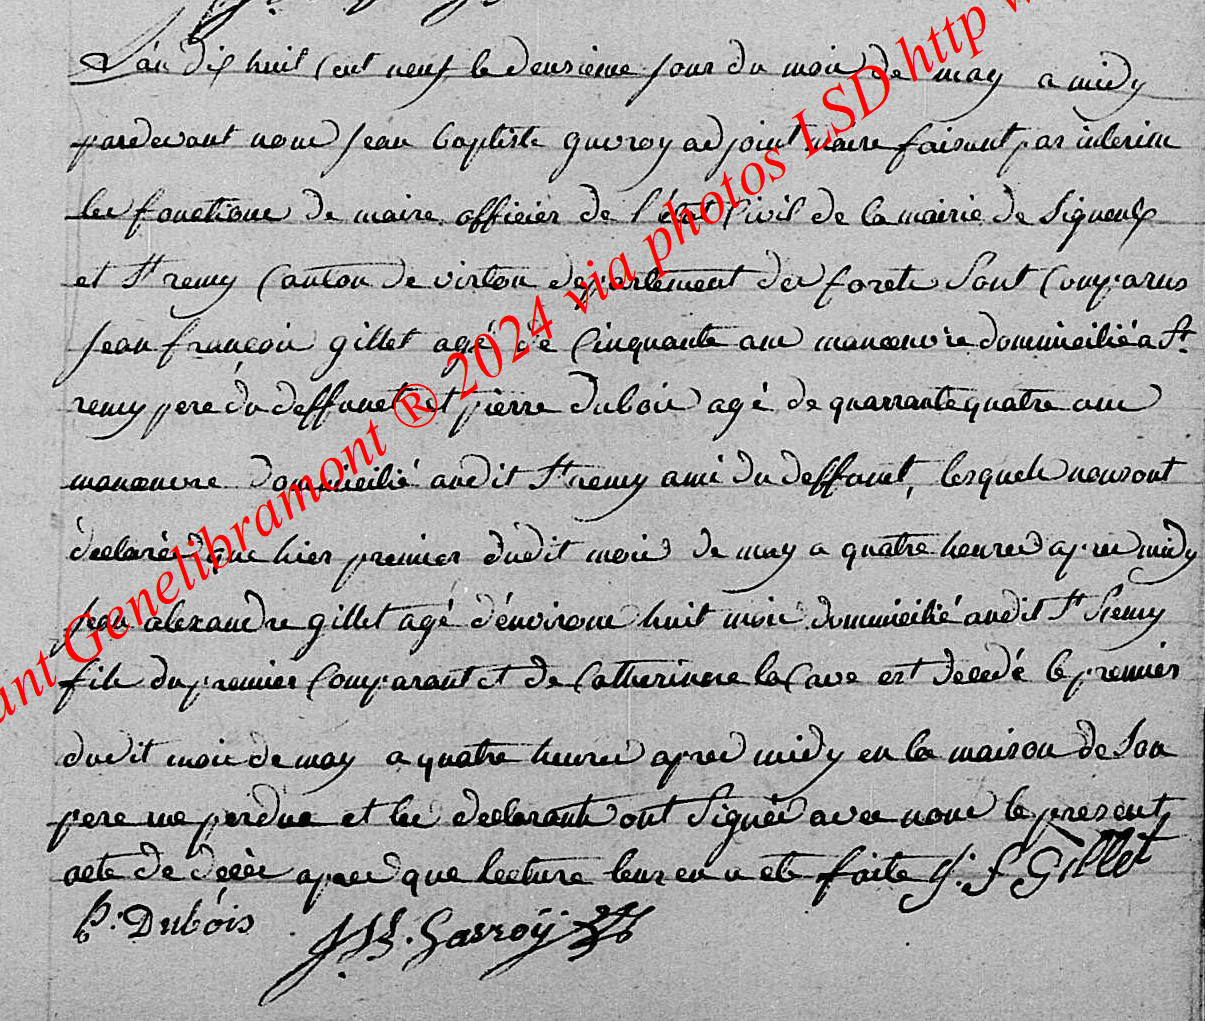 L'an dix huit Cent neuf le deuxieme jour du mois de may a midy
pardevant nous jean baptiste guerroy adjoint maire faisant par interim
les fonctions de maire officier de l'état Civil de la mairie de Signeulx
et St remy Canton de virton departement des forets Sont Comparus
jean françois gillet agé de Cinquante ans manoeuvre domicilié a St
remy pere du deffunct et pierre dubois agé de quarrante quatre ans
manoeuvre domicilié audit St remy ami du deffunct, lesquels nous ont
déclarés que hier premier dudit mois de may a quatre heures apres midy
jean alexandre gillet agé d'environs huit mois domicilié audit St Remy
fils du premier Comparant et de Catherinne la Cave est décédé le premier
dudit mois de may a quatre heures apres midy en la maison de Son
pere rue perdue et les declarants ont Signés avec nous le present
acte de décès apres que lecture leur en a ete faite J. F. Gillet
P. Dubois J. B. Garroÿ
ant Genelibramont ® 2024 via photos LSD http